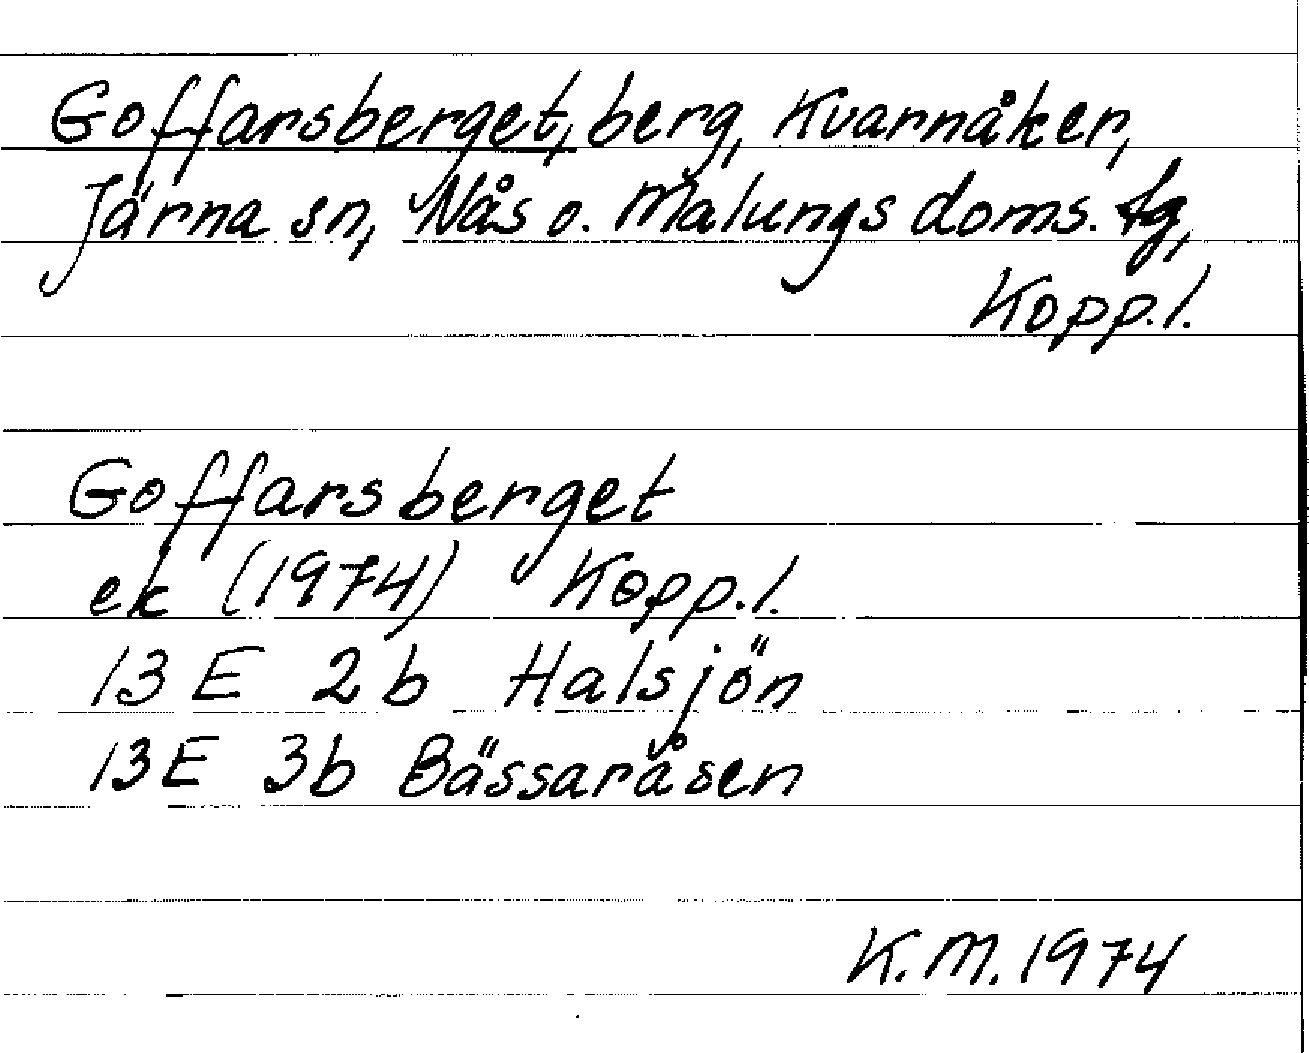 Goffarsberget, berg, Kvarnåker,
Järna sn, Nås o. Malungs doms. tg,
Kopp.l.
Goffarsberget
ek (1974) Kopp.l.
13 E 2b Halsjön
13E 3b Bässaråsen
K.M. 1974